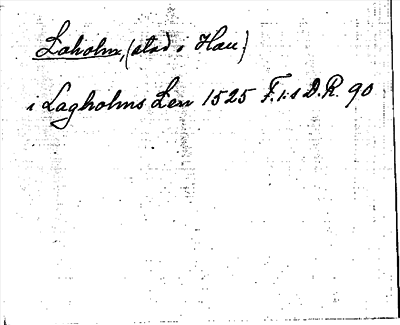 Laholm, (stad i Hall)
i Lagholms Len 1525 F.r:s D.R. 90